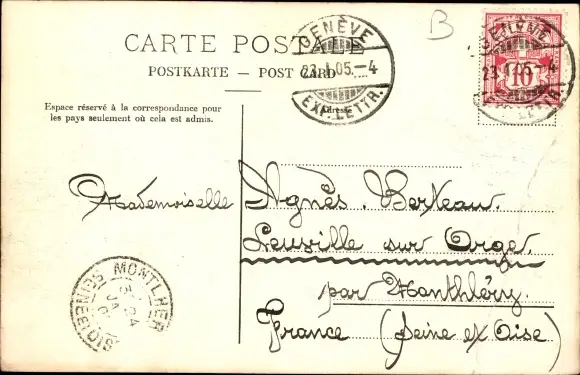 B
CARTE POSTALE
POSTKARTE — POST CARD
Espace réservé à la correspondance pour
les pays seulement où cela est admis.
GENÈVE
23.I.05.-4
EXP. LETTR.
Adresse
GENÈVE
23.I.05.-4
10
LETTR.
Mademoiselle Agnès. Berteau.
Leuville sur Orge.
par Monthléry.
France (Seine et Oise)
MONTLHERY
24